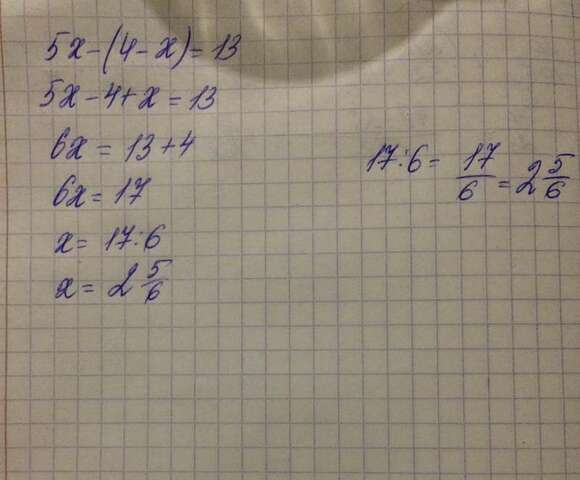 5x-(4-x)=13
5x-4+x=13
6x=13+4
6x=17
x=17:6
x=2 5/6
17:6= 17/6 =2 5/6